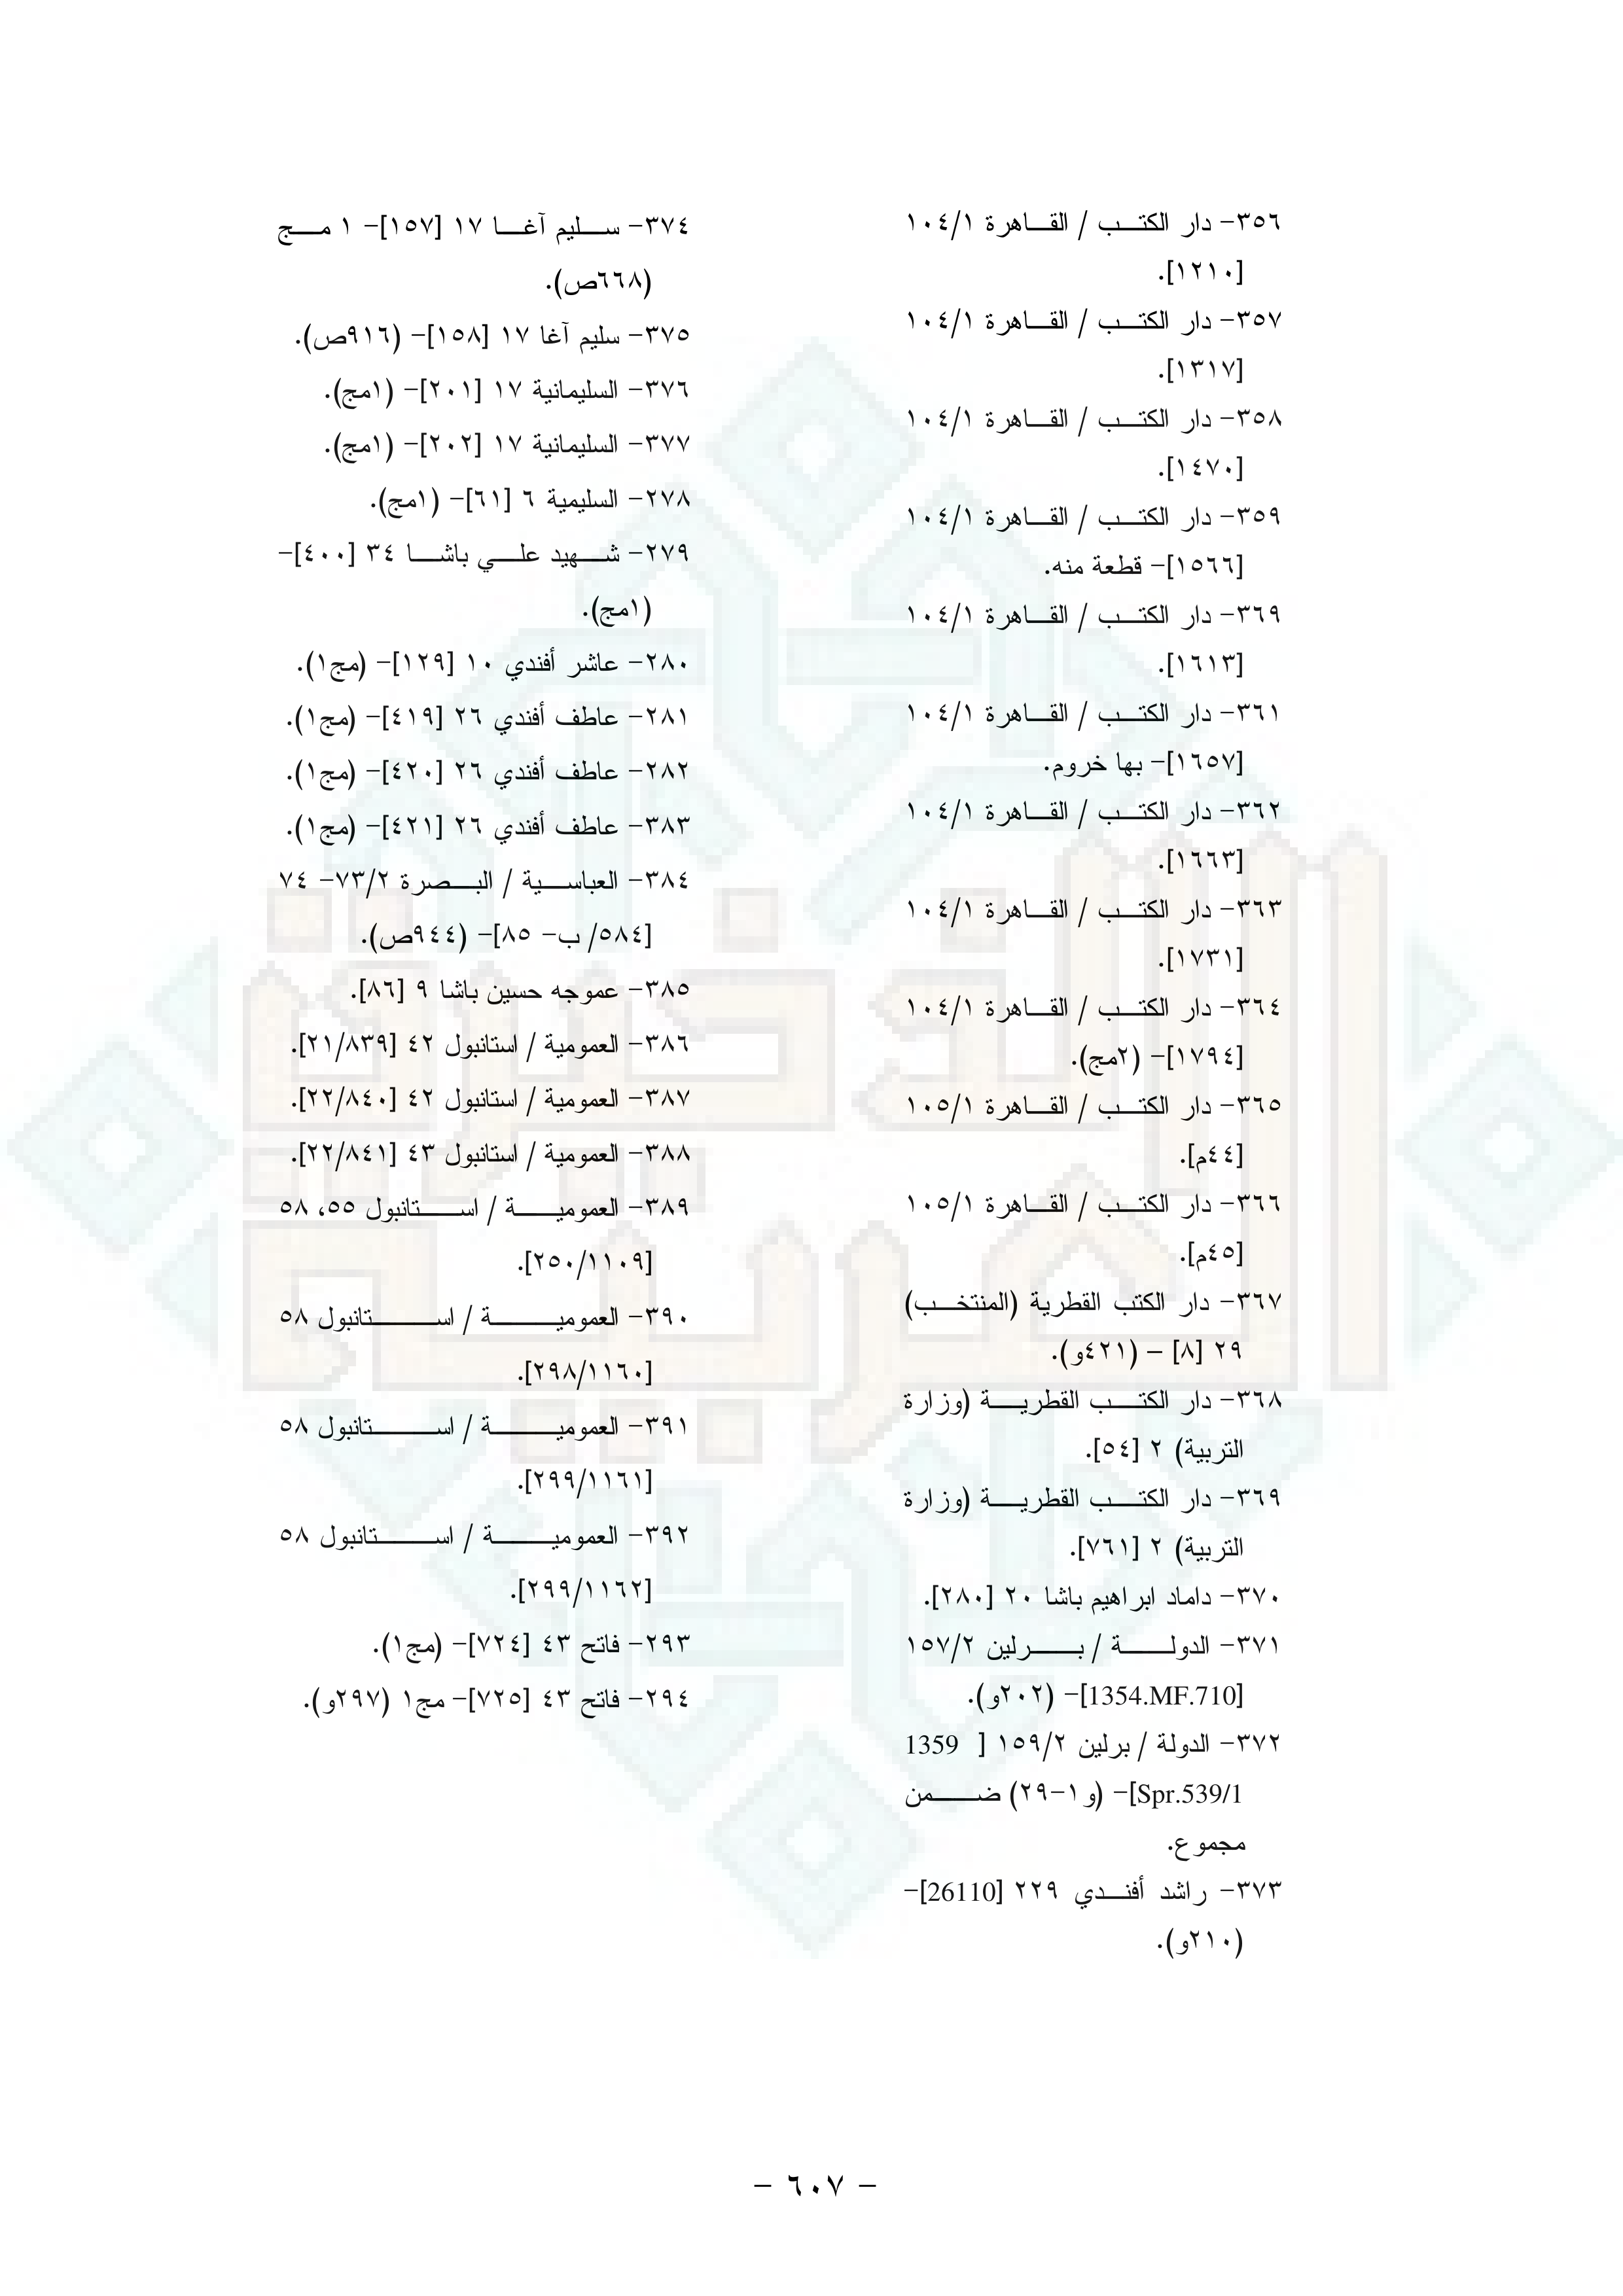 ٣٥٦- دار الكتب / القاهرة ١٠٤/١
[١٢١٠].
٣٥٧- دار الكتب / القاهرة ١٠٤/١
[١٣١٧].
٣٥٨- دار الكتب / القاهرة ١٠٤/١
[١٤٧٠].
٣٥٩- دار الكتب / القاهرة ١٠٤/١
[١٥٦٦]- قطعة منه.
٣٦٩- دار الكتب / القاهرة ١٠٤/١
[١٦١٣].
٣٦١- دار الكتب / القاهرة ١٠٤/١
[١٦٥٧]- بها خروم.
٣٦٢- دار الكتب / القاهرة ١٠٤/١
[١٦٦٣].
٣٦٣- دار الكتب / القاهرة ١٠٤/١
[١٧٣١].
٣٦٤- دار الكتب / القاهرة ١٠٤/١
[١٧٩٤]- (٢مج).
٣٦٥- دار الكتب / القاهرة ١٠٥/١
[٤٤م].
٣٦٦- دار الكتب / القاهرة ١٠٥/١
[٤٥م].
٣٦٧- دار الكتب القطرية (المنتخب)
٢٩ [٨] – (٤٢١و).
٣٦٨- دار الكتب القطرية (وزارة
التربية) ٢ [٥٤].
٣٦٩- دار الكتب القطرية (وزارة
التربية) ٢ [٧٦١].
٣٧٠- داماد ابراهيم باشا ٢٠ [٢٨٠].
٣٧١- الدولة / برلين ١٥٧/٢
[1354.MF.710]- (٢٠٢و).
٣٧٢- الدولة / برلين ١٥٩/٢ [ 1359
Spr.539/1]- (و١-٢٩) ضمن
مجموع.
٣٧٣- راشد أفندي ٢٢٩ [26110]-
(٢١٠و).
٣٧٤- سليم آغا ١٧ [١٥٧]- ١ مج
(٦٦٨ص).
٣٧٥- سليم آغا ١٧ [١٥٨]- (٩١٦ص).
٣٧٦- السليمانية ١٧ [٢٠١]- (١مج).
٣٧٧- السليمانية ١٧ [٢٠٢]- (١مج).
٢٧٨- السليمية ٦ [٦١]- (١مج).
٢٧٩- شهيد علي باشا ٣٤ [٤٠٠]-
(١مج).
٢٨٠- عاشر أفندي ١٠ [١٢٩]- (مج١).
٢٨١- عاطف أفندي ٢٦ [٤١٩]- (مج١).
٢٨٢- عاطف أفندي ٢٦ [٤٢٠]- (مج١).
٣٨٣- عاطف أفندي ٢٦ [٤٢١]- (مج١).
٣٨٤- العباسية / البصرة ٧٣/٢- ٧٤
[٥٨٤/ ب- ٨٥]- (٩٤٤ص).
٣٨٥- عموجه حسين باشا ٩ [٨٦].
٣٨٦- العمومية / استانبول ٤٢ [٢١/٨٣٩].
٣٨٧- العمومية / استانبول ٤٢ [٢٢/٨٤٠].
٣٨٨- العمومية / استانبول ٤٣ [٢٢/٨٤١].
٣٨٩- العمومية / استانبول ٥٥، ٥٨
[٢٥٠/١١٠٩].
٣٩٠- العمومية / استانبول ٥٨
[٢٩٨/١١٦٠].
٣٩١- العمومية / استانبول ٥٨
[٢٩٩/١١٦١].
٣٩٢- العمومية / استانبول ٥٨
[٢٩٩/١١٦٢].
٢٩٣- فاتح ٤٣ [٧٢٤]- (مج١).
٢٩٤- فاتح ٤٣ [٧٢٥]- مج١ (٢٩٧و).
- ٦٠٧ -
الذخيرة
العربية